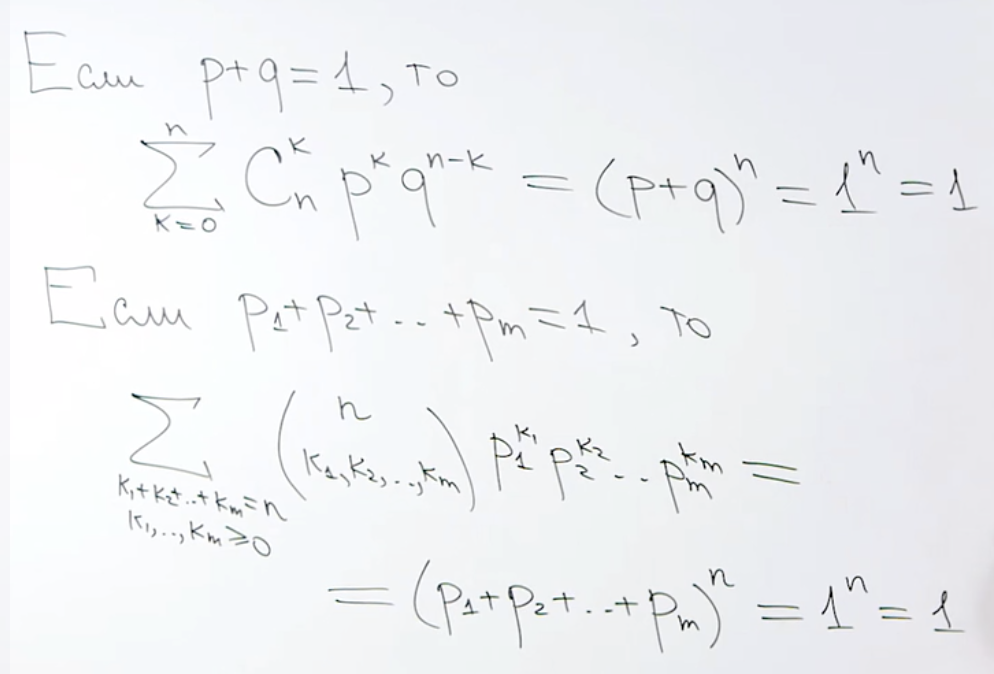 Если p+q=1, то
\sum_{k=0}^{n} C_n^k p^k q^{n-k} = (p+q)^n = 1^n = 1
Если p_1+p_2+..+p_m=1, то
\sum_{k_1+k_2+..+k_m=n, k_1,..,k_m≥0} \binom{n}{k_1,k_2,..,k_m} p_1^{k_1} p_2^{k_2} .. p_m^{k_m} =
= (p_1+p_2+..+p_m)^n = 1^n = 1